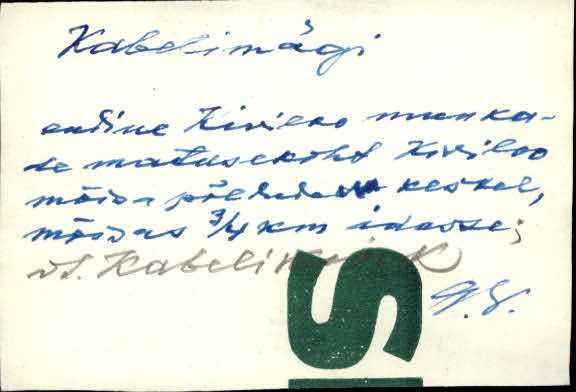 Kabelimägi
endine Kiviloo munka-
de matusekoht Kiviloo
mõisa põldude keskel,
mõisas 3/4 km idasse;
vt. Kabelikink
S